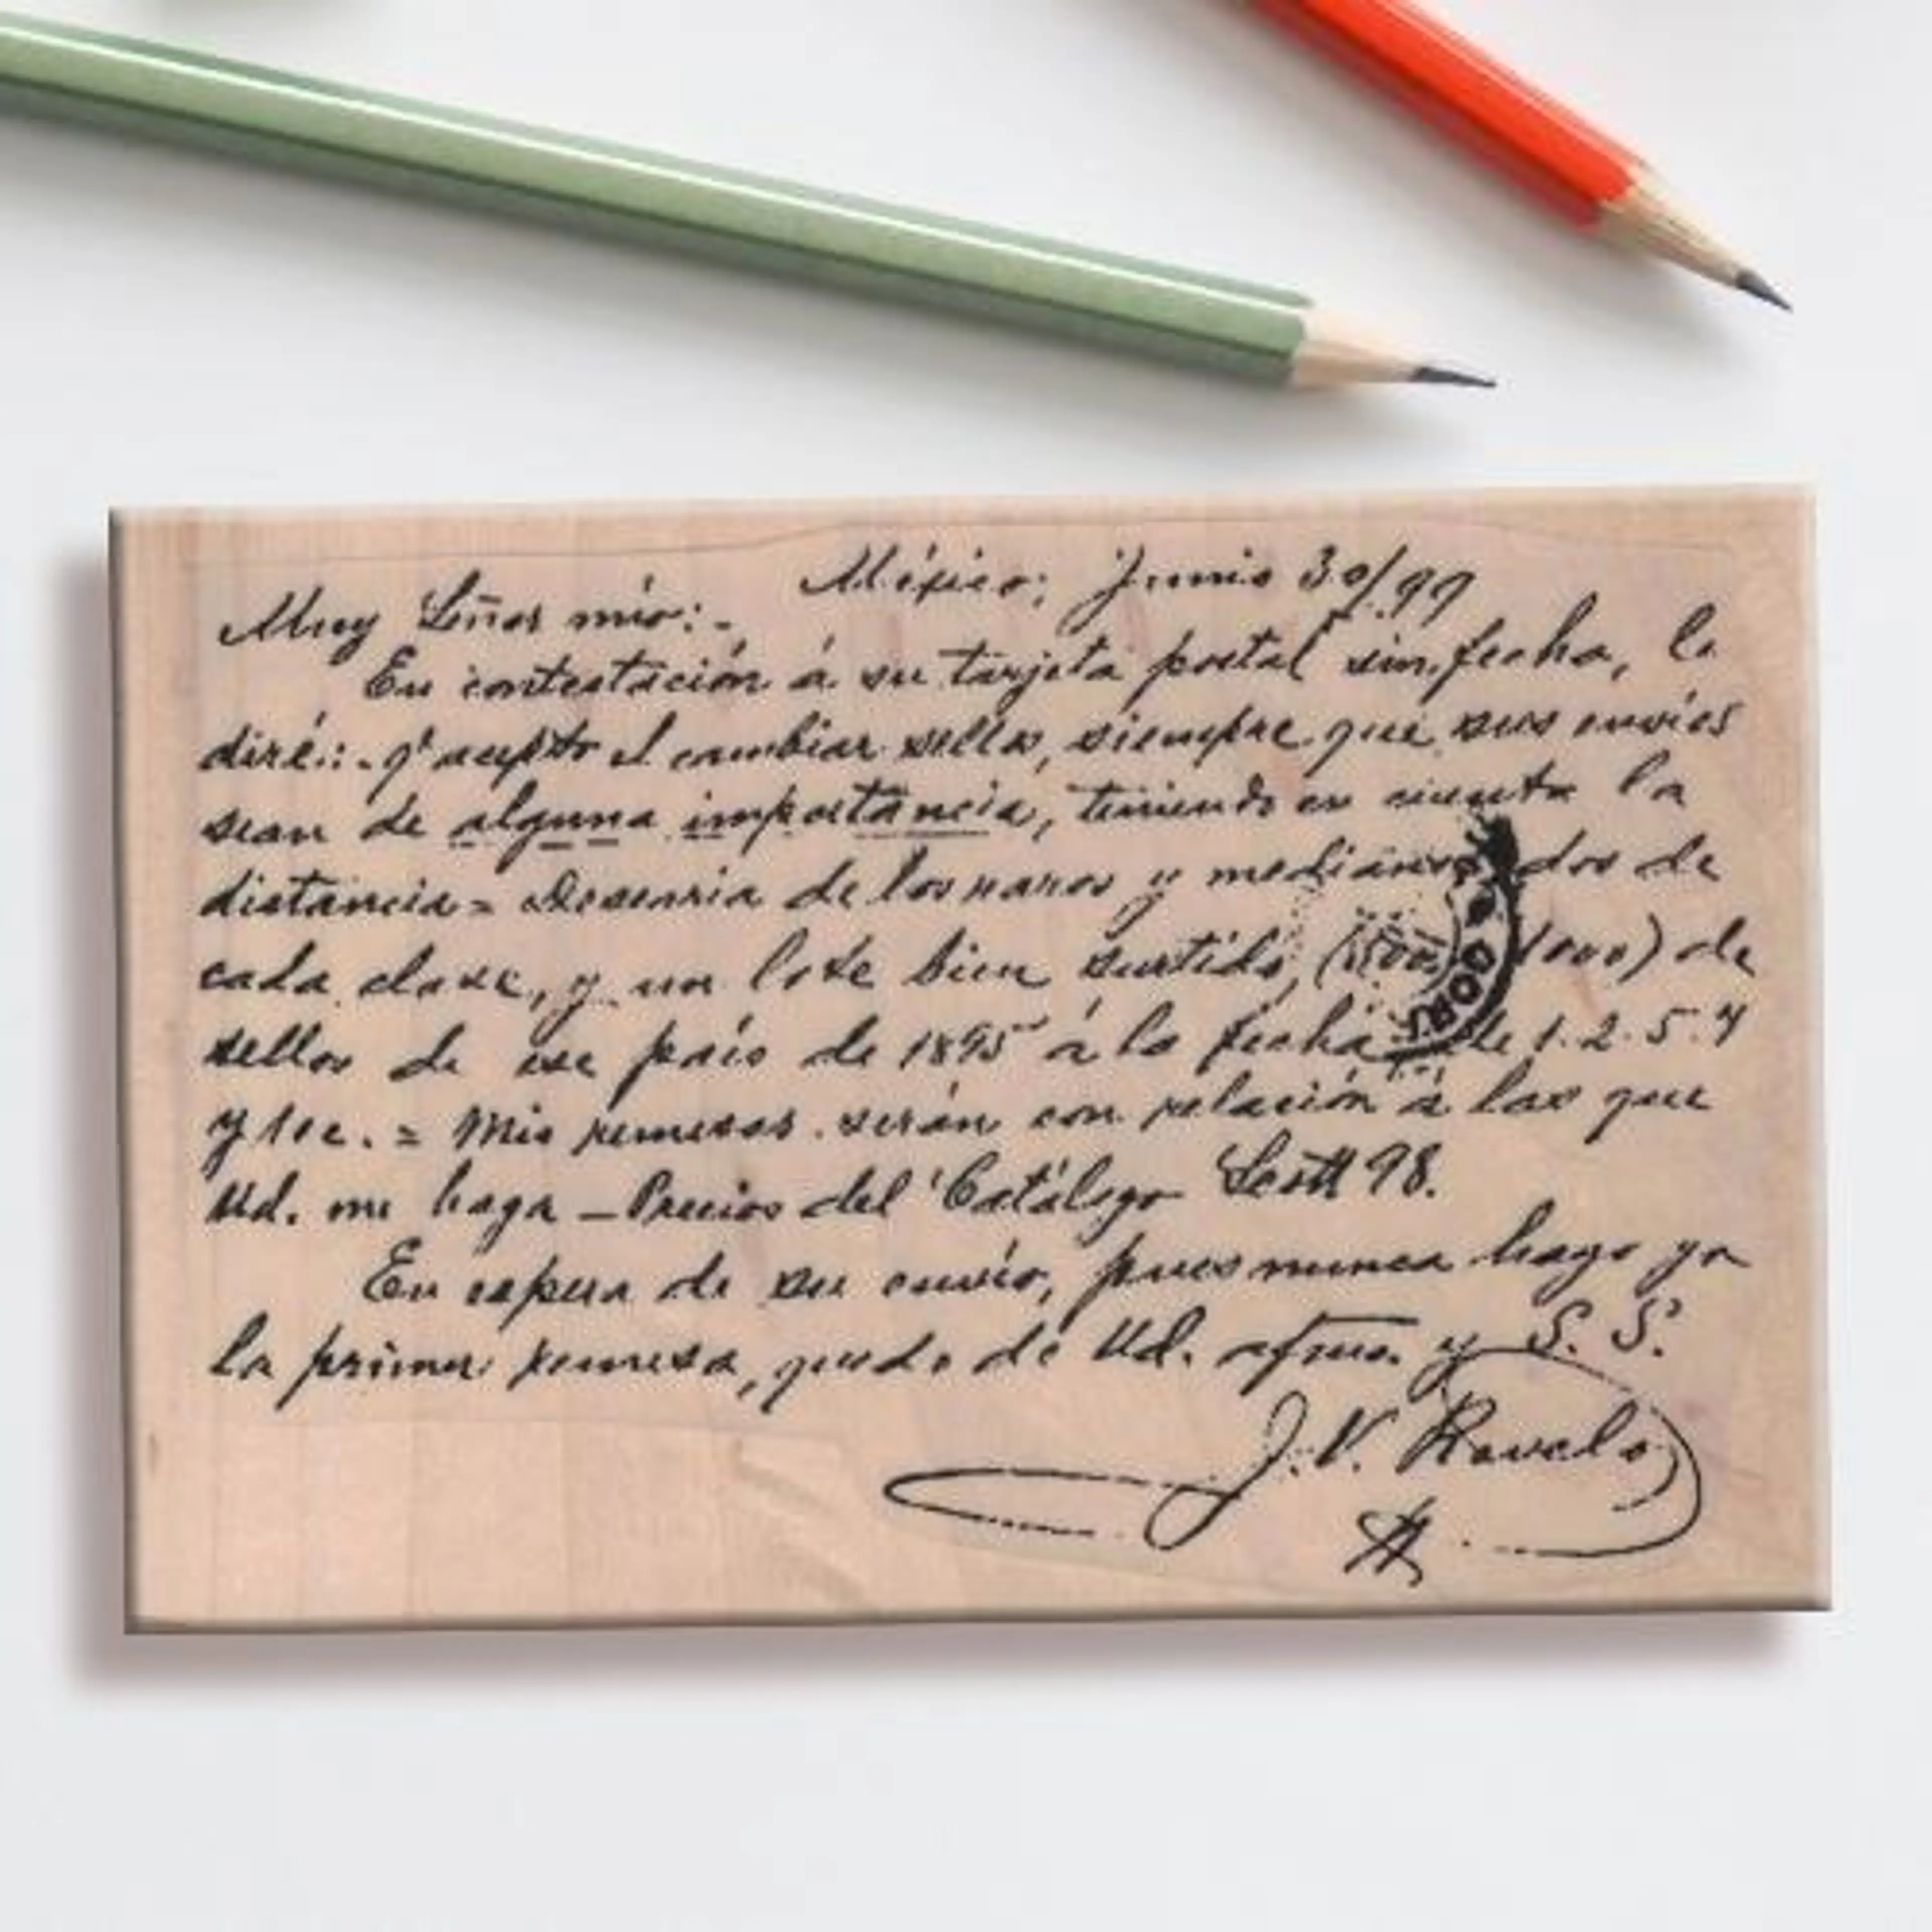 México; Junio 30/99
Muy Señor mío:-
En contestación á su tarjeta postal sin fecha, le
diré:- q' acepto el cambiar sellos, siempre que sus envíos
sean de alguna importancia, teniendo en cuenta la
distancia = Desearia de los raros y medianos dos de
cada clase, y un lote bien surtido, (500 1000) de
sellos de ese país de 1895 á la fecha de 1. 2. 5. y
y 10c. = Mis remesas serán con relación á las que
Ud. me haga — Precios del Catálogo Scott 98.
En espera de su envío, pues nunca hago yo
la primer remesa, quedo de Ud. afmo. y S. S.
J. V. Ravelo